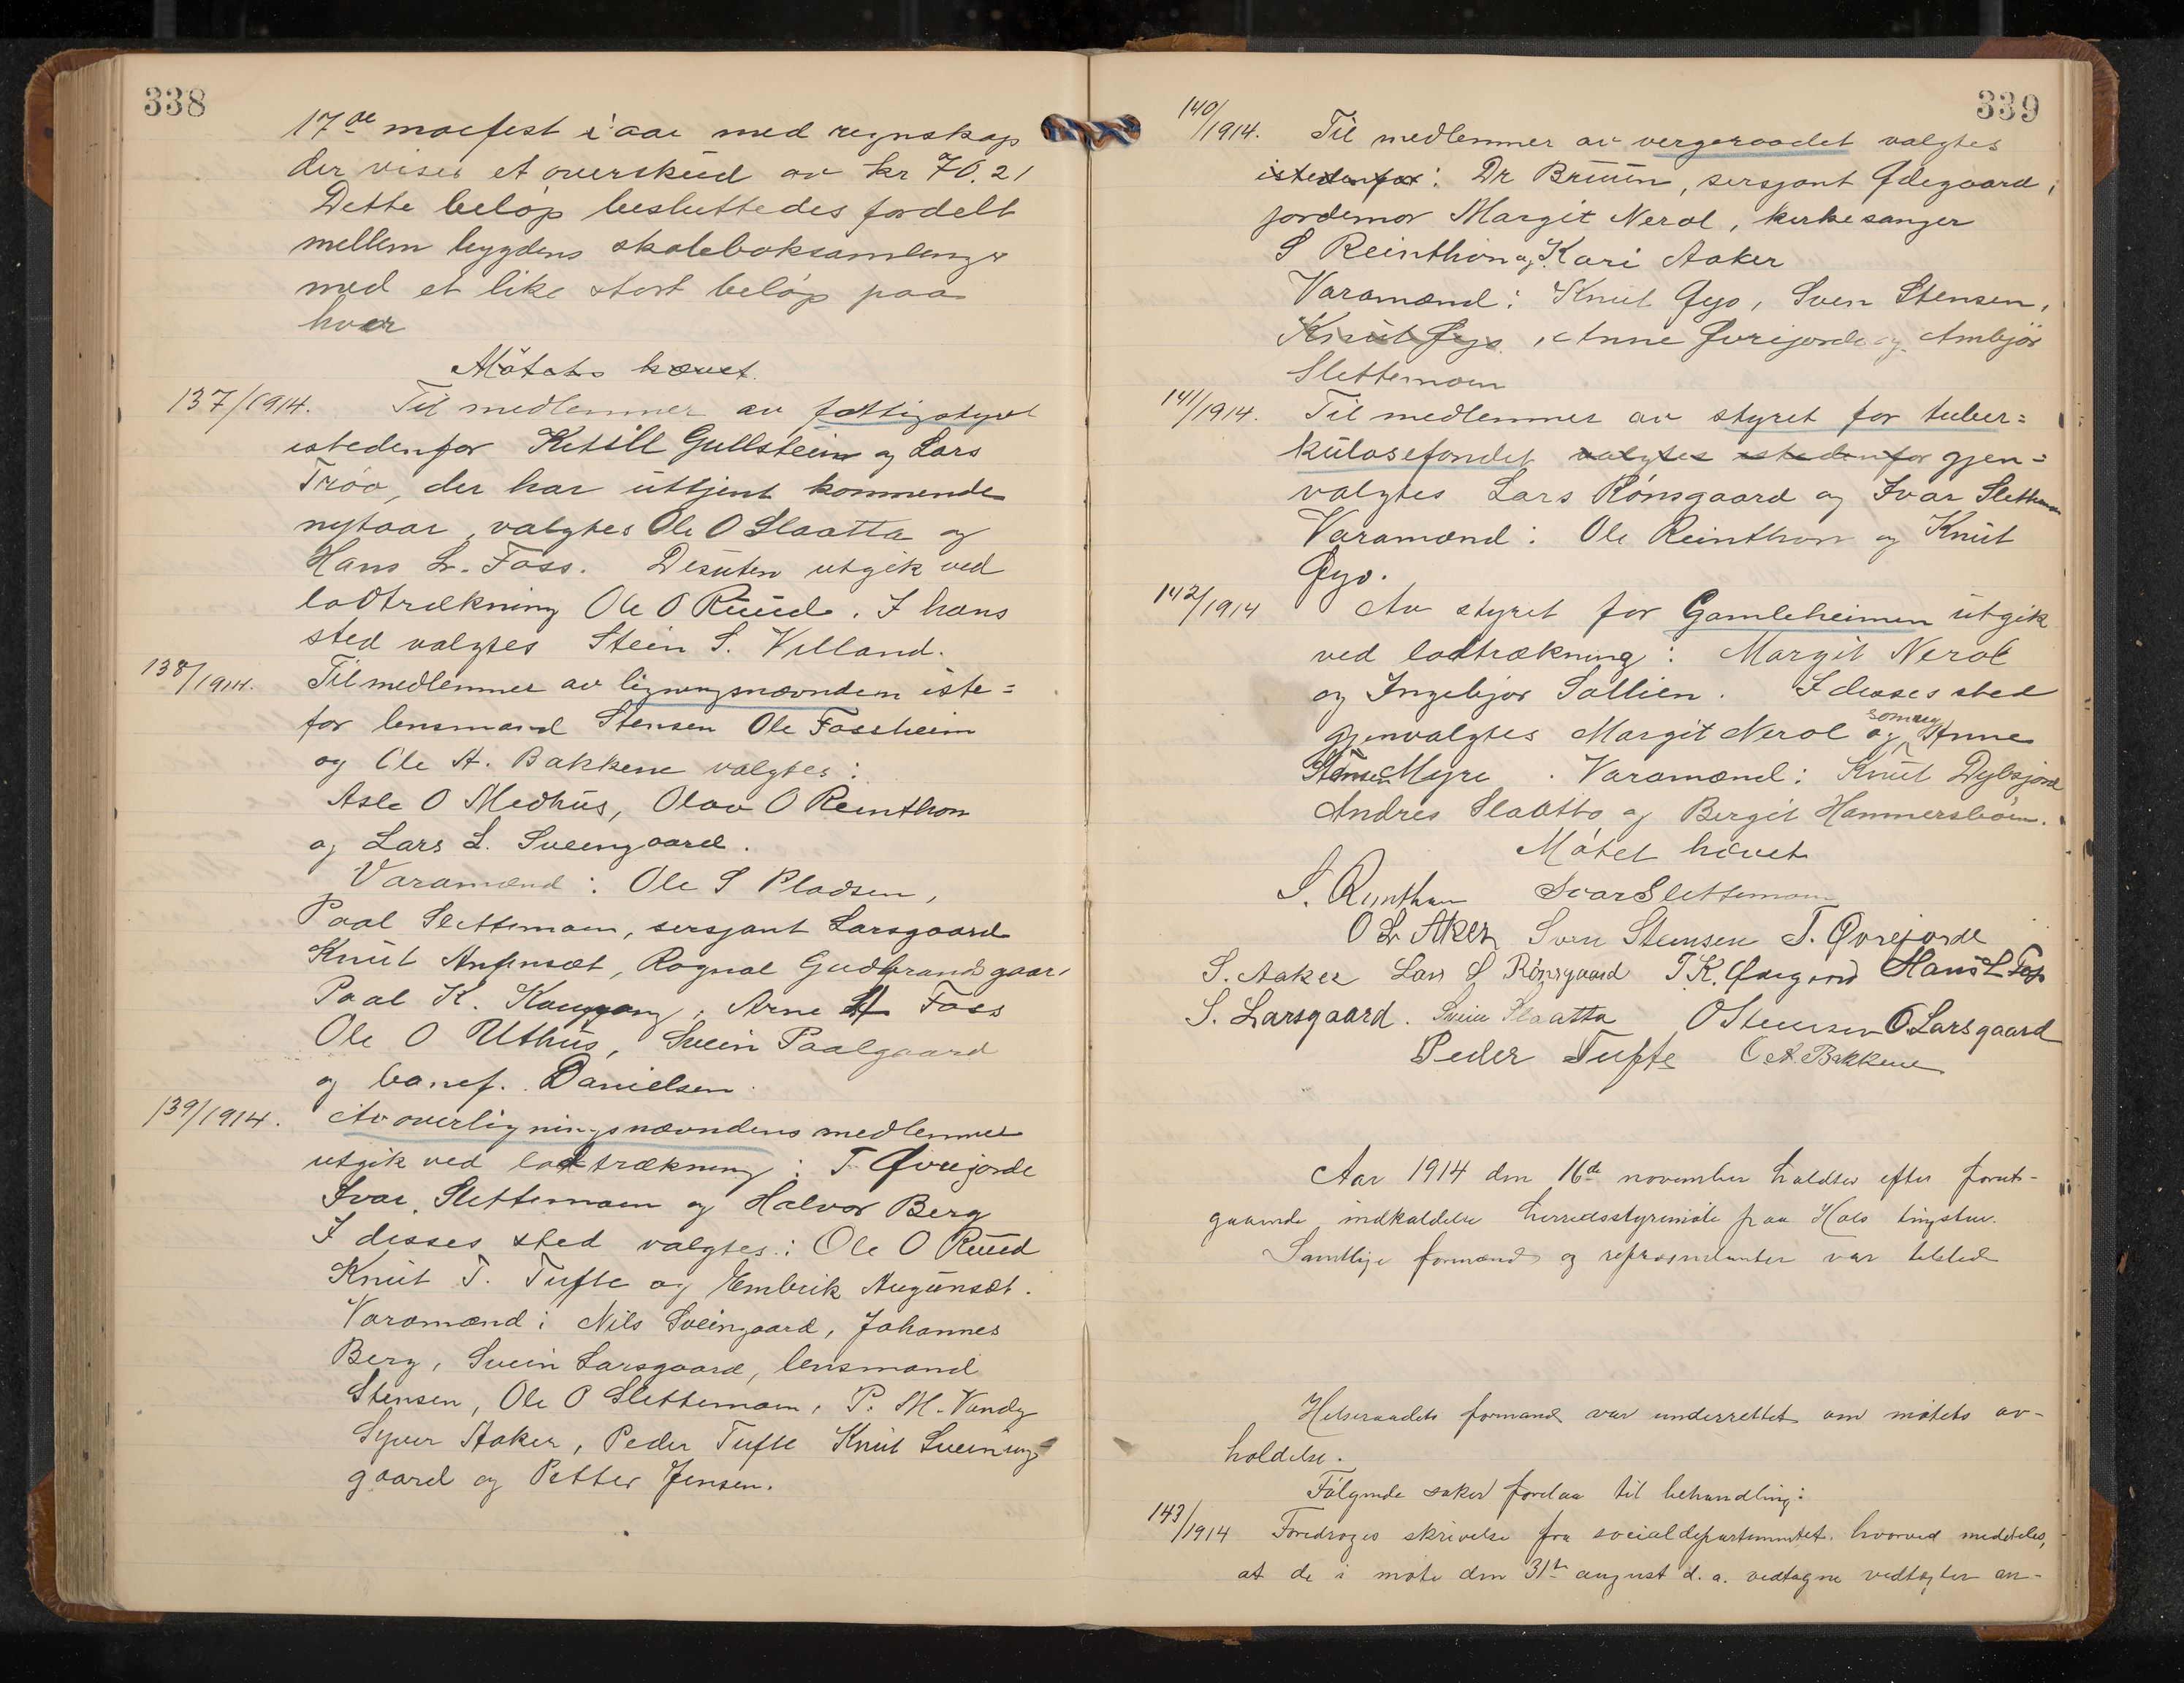 338
17de maefest i aar med regnskap
der viser et overskud av kr 70.21
Dette beløp besluttedes fordelt
mellem bygdens skoleboksamlinger
med et like stort beløp paa
hver
Møtets hævet.
137/1914. Til medlemmer av fattigstyret
istedenfor Ketill Gullstein og Lars
Trøo, der har uttjent kommende
nytaar, valgtes Ole O Slaatta og
Hans L. Foss. Desuten utgik ved
lodtrækning Ole O Ruud. I hans
sted valgtes Stein S. Villand.
138/1914. Til medlemmer av ligningsnævnden iste=
for lensmand Stensen Ole Fossheim
og Ole A. Bakkene valgtes:
Asle O Medhus, Olav O Reinthon
og Lars L. Sveengaard.
Varamænd: Ole S Pladsen,
Paal Slettemoen, sersjant Larsgaard
Knut Anfinset, Ragnal Gudbrandsgaar,
Paal K. , Arne A Foss
Ole O Uthus, Svein Paalgaard
og banef. Danielsen.
139/1914. Av overligningsnævndens medlemmer
utgik ved lodtrækning: T. Øvrejorde
Ivar Slettemoen og Halvor Berg
I disses sted valgtes: Ole O Ruud
Knut T. Tufte og Embrik Augunset.
Varamænd: Nils Sveingaard, Johannes
Berg, Svein Larsgaard, lensmand
Stensen, Ole O Slettemoen, P. M. Vandy
Syver Aaker, Peder Tufte Knut Sveinung=
gaard og Petter Jensen.
339
140/1914. Til medlemmer av vergeraadet valgtes
istedenfor: Dr Bruun, sersjant Ødegaard,
jordemor Margit Nerol, kirkesanger
S Reinthon og Kari Aaker
Varamænd: Knut Øyo, Sven Stensen,
Knut Øyo, Anne Øvrejorde og Ambjør
Slettemoen
141/1914. Til medlemmer av styret for tuber=
kulosefondet valgtes istedenfor gjen=
valgtes Lars Rønsgaard og Ivar Slettemoen
Varamænd: Ole Reinthon og Knut
Øyo.
142/1914 Av styret for Gamleheimen utgik
ved lodtrækning: Margit Nerol
og Ingebjør Sallien. I disses sted
gjenvalgtes Margit Nerol og Anne
Stensen Myre. Varamænd: Knut Dybsjord
Andres Slaatto og Bergit Hammersbøen.
Møtet hævet
S. Reinthon Ivar Slettemoen
O L Aker Sven Stensen T. Øvrejorde
S. Aaker Lars L Rønsgaard T. K. Ødegaard Hans L Foss
S. Larsgaard. Svein Slaatta O Stensen O Larsgaard
Peder Tufte O A. Bakkene
Aar 1914 den 16de november holdtes efter forut-
gaaende indkaldelse herredsstyremøte paa Hols tingstue.
Samtlige formænd og repræsentanter var tilstede
Helseraadets formand var underrettet om møtets av-
holdelse.
Følgende saker forelaa til behandling:
143/1914 Foredroges skrivelse fra socialdepartementet. hvorved meddeles,
at de i møte den 31te august d. a. vedtagne vedtægter an-